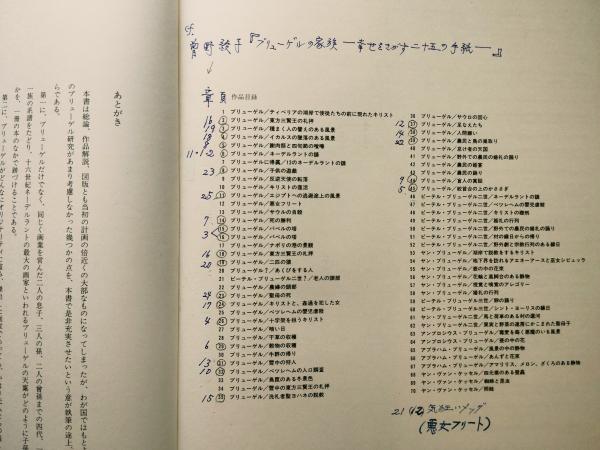 cf.
曽野綾子『ブリューゲルの家族 ―幸せをさがす二十五の手紙―』
↓
章 頁 作品目録
1 ブリューゲル/ティベリアの湖岸で使徒たちの前に現れたキリスト
16 2 ブリューゲル/東方三賢王の礼拝
19 3 ブリューゲル/種まく人の譬えのある風景
18 4 ブリューゲル/イカルスの墜落のある風景
5 ブリューゲル/謝肉祭と四旬節の喧嘩
11・1・2 6 ブリューゲル/ネーデルラントの諺
7 ブリューゲルに帰属/12のネーデルラントの諺
23 8 ブリューゲル/子供の遊戯
9 ブリューゲル/反逆天使の転落
10 ブリューゲル/キリストの復活
25 11 ブリューゲル/エジプトへの逃避途上の風景
12 ブリューゲル/悪女フリート
13 ブリューゲル/サウルの自殺
7 14 ブリューゲル/死の勝利
3 15 ブリューゲル/バベルの塔
16 ブリューゲル/バベルの塔
17 ブリューゲル/ナポリの港の景観
16 18 ブリューゲル/東方三賢王の礼拝
20 19 ブリューゲル/二匹の猿
20 ブリューゲル?/あくびをする人
21 ピーテル・ブリューゲル二世?/老人の頭部
22 ブリューゲル/農婦の頭部
24 23 ブリューゲル/聖母の死
17 24 ブリューゲル/キリストと、姦通を犯した女
25 ブリューゲル/ベツレヘムの嬰児虐殺
4 26 ブリューゲル/十字架を担うキリスト
27 ブリューゲル/暗い日
28 ブリューゲル/干草の収穫
6 29 ブリューゲル/穀物の収穫
30 ブリューゲル/牛群の帰り
13 31 ブリューゲル/雪中の狩人
10 32 ブリューゲル/ベツレヘムの人口調査
33 ブリューゲル/鳥罠のある冬景色
34 ブリューゲル/雪中の東方三賢王の礼拝
15 35 ブリューゲル/洗礼者聖ヨハネの説教
36 ブリューゲル/サウロの回心
12 37 ブリューゲル/足なえたち
14 38 ブリューゲル/人間嫌い
22 39 ブリューゲル/農民と鳥の巣取り
40 ブリューゲル/怠け者の天国
41 ブリューゲル/野外での農民の婚礼の踊り
42 ブリューゲル/農民の婚宴
43 ブリューゲル/農民の踊り
9 44 ブリューゲル/盲人の寓話
5 45 ブリューゲル/絞首台の上のかささぎ
46 ピーテル・ブリューゲル二世/ネーデルラントの諺
47 ピーテル・ブリューゲル二世/ベツレヘムの嬰児虐殺
48 ピーテル・ブリューゲル二世/キリストの磔刑
49 ピーテル・ブリューゲル二世/婚礼の行列
50 ピーテル・ブリューゲル二世/野外での農民の婚礼の踊り
51 ピーテル・ブリューゲル二世/村の縁日からの帰り
52 ピーテル・ブリューゲル二世/野外劇と宗教行列のある縁日
53 ヤン・ブリューゲル/湖岸で説教をするキリスト
54 ヤン・ブリューゲル/地下界を訪れるアエネーアースと巫女シビュッラ
55 ヤン・ブリューゲル/壺の中の花束
56 ヤン・ブリューゲル/花輪と風景画のある静物
57 ヤン・ブリューゲル/視覚と嗅覚のアレゴリー
58 ヤン・ブリューゲル/婚礼の行列
59 ピーテル・ブリューゲル三世/卵の踊り
60 ピーテル・ブリューゲル三世/シント・ヨーリスの縁日
61 ヤン・ブリューゲル二世/馬と荷車のある村の運河
62 ヤン・ブリューゲル二世/果実と野菜の花環にかこまれた聖母子
63 アンブロシウス・ブリューゲル/聴覚を描く悪魔のいる風景
64 アンブロシウス・ブリューゲル/壺の中の花
65 アブラハム・ブリューゲル/風景の中の静物
66 アブラハム・ブリューゲル/あんずと花束
67 アブラハム・ブリューゲル/アマリリス、メロン、ざくろのある静物
68 ヤン・ヴァン・ケッセル/四元素のある聖画
69 ヤン・ヴァン・ケッセル/蜘蛛と昆虫
70 ヤン・ヴァン・ケッセル/四元素
21
(悪女フリート)
あとがき
本書は総論、作品解説、図版とも当初の計画の倍近くの大部なものになってしまったが、わが国ではもとよ
のブリューゲル研究があまり考慮しなかった幾つかの点を、本書で是非充実させたいという意が執筆の途上、
らである。
第一に、ブリューゲルだけでなく、同じく画業を営んだ二人の息子、三人の孫、二人の曽孫までの四代、一
一族の系譜をたどり、十六世紀ネーデルラントの最大の画家といわれるブリューゲルの天稟がどのように子孫
かを、一冊の本のなかで跡づけることである。